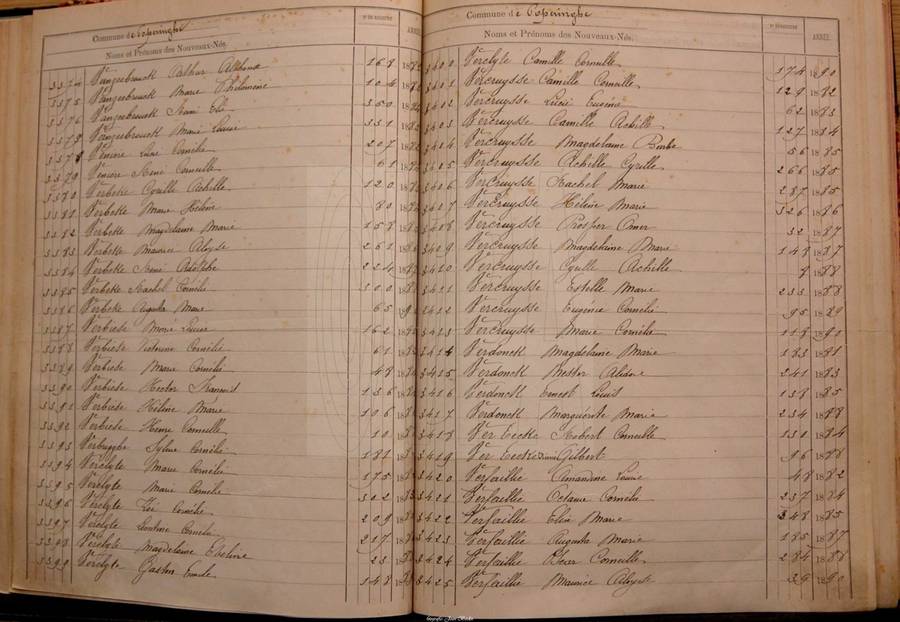 Commune de Poperinghe
Noms et Prénoms des Nouveaux-Nés.
Nº DE REGISTRE
ANNÉE
3374 Vangeebrouck Arthur 168 188
3375 Vangeebrouck Marie Philomène 104 188
3376 Vangeebrouck Remi 350 188
3377 Vangeebrouck Marie Louise 331 188
3378 Venière Cornélie 207 188
3379 Venière Remi Corneille 65 188
3380 Verbeke Cyrille Achille 120 188
3381 Verbeke Marie Hélène 80 188
3382 Verbeke Magdelaine Marie 158 188
3383 Verbeke Maurice Aloyse 261 188
3384 Verbeke Remi Adolphe 224 188
3385 Verbeke Rachel Cornélie 300 188
3386 Verbeke Augusta Marie 65 189
3387 Verbiese Marie Louise 162 188
3388 Verbiese Victorine Cornélie 61 188
3389 Verbiese Marie Cornélie 48 188
3390 Verbiese Hector François 136 188
3391 Verbiese Hélène Marie 106 188
3392 Verbiese Henri Corneille 10 188
3393 Verbrugghe Sylvie Cornélie 181 188
3394 Verclyte Marie Cornélie 175 188
3395 Verclyte Marie Cornélie 302 188
3396 Verclyte Zoé Cornélie 209 188
3397 Verclyte Léontine Cornélie 217 188
3398 Verclyte Magdelaine 23 188
3399 Verclyte Gaston Emile 148 188
Commune de Poperinghe
Noms et Prénoms des Nouveaux-Nés.
Nº DE REGISTRE
ANNÉE
3400 Verclyte Camille Corneille 174 1890
3401 Vercruysse Camille Corneille 129 1882
3402 Vercruysse Lucie Eugénie 62 1883
3403 Vercruysse Camille Achille 127 1884
3404 Vercruysse Magdelaine 56 1885
3405 Vercruysse Achille Cyrille 266 1885
3406 Vercruysse Rachel Marie 287 1885
3407 Vercruysse Hélène Marie 326 1886
3408 Vercruysse Prosper Omer 32 1887
3409 Vercruysse Magdelaine Marie 148 1887
3410 Vercruysse Cyrille Achille 8 1888
3411 Vercruysse Estelle Marie 233 1888
3412 Vercruysse Eugénie Cornélie 95 1889
3413 Vercruysse Marie Cornélie 118 1890
3414 Verdonck Magdelaine Marie 183 1881
3415 Verdonck Nestor Alidore 241 1883
3416 Verdonck Ernest Louis 138 1885
3417 Verdonck Marguerite Marie 234 1888
3418 Ver Eecke Robert Corneille 131 1884
3419 Ver Eecke Gilbert 96 1888
3420 Verfaillie Amandine Louise 48 1882
3421 Verfaillie Octavie Cornélie 237 1884
3422 Verfaillie Elise Marie 348 1885
3423 Verfaillie Augusta Marie 185 1887
3424 Verfaillie Oscar Corneille 284 1888
3425 Verfaillie Maurice Aloyse 39 1890